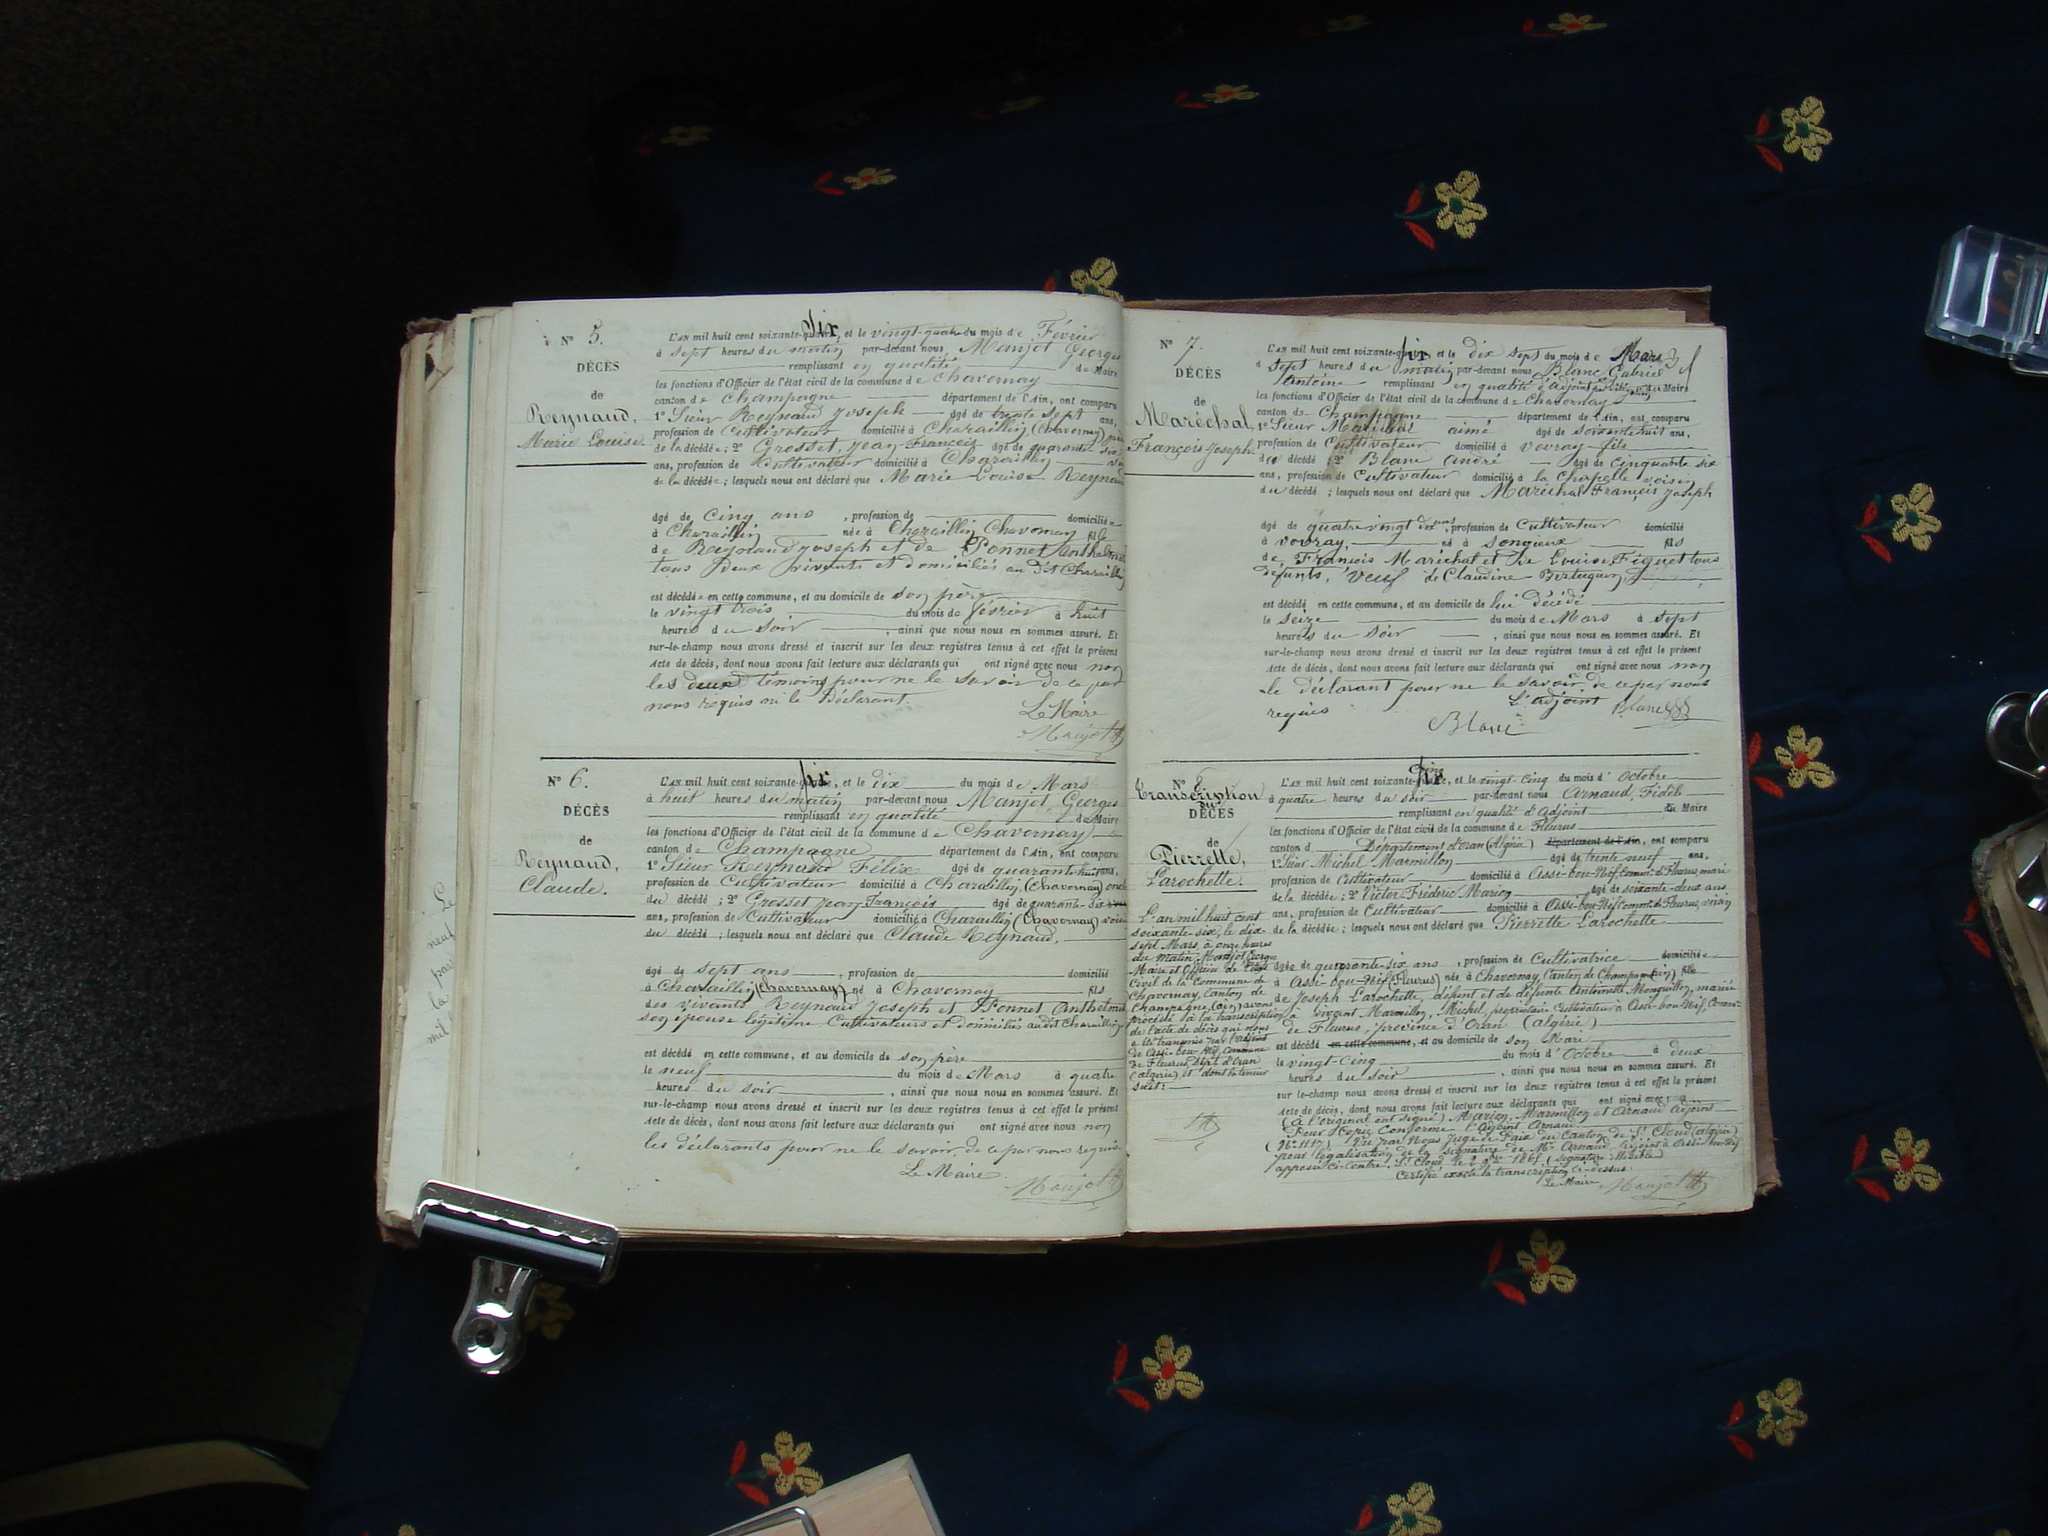 N° 5.
DÉCÈS
de
Reynaud,
Marie Louise.
L'AN mil huit cent soixante-six, et le vingt-quatre du mois de Février
à sept heures du matin par-devant nous Manjot Georges
remplissant en qualité de Maire
les fonctions d'Officier de l'état civil de la commune de Chavornay
canton de Champagne département de l'Ain, ont comparu
1° Sieur Reynaud Joseph âgé de trente sept ans,
profession de Cultivateur domicilié à Charaillin (Chavornay) père
de la décédée; 2° Grosset, Jean François âgé de quarante six
ans, profession de Cultivateur domicilié à Charaillin
de la décédée; lesquels nous ont déclaré que Marie Louise Reynaud
âgé de cinq ans, profession de domiciliée
à Charaillin née à Charaillin Chavornay fille
de Reynaud Joseph et de Ponnet
tous deux vivants et domiciliés au dit Charaillin
est décédée en cette commune, et au domicile de son père
le vingt trois du mois de février à huit
heures du soir, ainsi que nous nous en sommes assuré. Et
sur-le-champ nous avons dressé et inscrit sur les deux registres tenus à cet effet le présent
acte de décès, dont nous avons fait lecture aux déclarants qui ont signé avec nous non
les deux témoins pour ne le savoir de ce par
nous requis ni le Déclarant.
Le Maire
Manjot
N° 6.
DÉCÈS
de
Reynaud,
Claude.
L'AN mil huit cent soixante-six, et le dix du mois de Mars
à huit heures du matin par-devant nous Manjot, Georges
remplissant en qualité de Maire
les fonctions d'Officier de l'état civil de la commune de Chavornay
canton de Champagne département de l'Ain, ont comparu
1° Sieur Reynaud Félix âgé de quarante huit ans,
profession de Cultivateur domicilié à Charaillin (Chavornay) oncle
du décédé; 2° Grosset Jean François âgé de quarante-six
ans, profession de Cultivateur domicilié à Charaillin (Chavornay) voisin
du décédé; lesquels nous ont déclaré que Claude Reynaud,
âgé de sept ans, profession de domicilié
à Charaillin (Chavornay) né à Chavornay fils
des vivants Reynaud Joseph et Ponnet Anthelmette
son épouse légitime Cultivateurs et domiciliés audit Charaillin
est décédé en cette commune, et au domicile de son père
le neuf du mois de Mars à quatre
heures du soir, ainsi que nous nous en sommes assuré. Et
sur-le-champ nous avons dressé et inscrit sur les deux registres tenus à cet effet le présent
acte de décès, dont nous avons fait lecture aux déclarants qui ont signé avec nous non
les déclarants pour ne le savoir de ce par nous requis.
Le Maire
Manjot
N° 7.
DÉCÈS
de
Maréchal,
François Joseph.
L'AN mil huit cent soixante-six et le dix sept du mois de Mars
à sept heures du matin par-devant nous Blanc, Gabriel
Antoine remplissant en qualité d'adjoint de Maire
les fonctions d'Officier de l'état civil de la commune de Chavornay
canton de Champagne département de l'Ain, ont comparu
1° Sieur Maréchal aimé âgé de soixante huit ans,
profession de Cultivateur domicilié à Vovray fils
du décédé 2° Blanc André âgé de cinquante six
ans, profession de Cultivateur domicilié à la Chapelle voisin
du décédé; lesquels nous ont déclaré que Maréchal François Joseph
âgé de quatre vingt ans, profession de Cultivateur domicilié
à Vovray, né à Songieux fils
de François Maréchal et de Louise Figuet tous
défunts, Veuf de Claudine
est décédé en cette commune, et au domicile de lui décédé
le seize du mois de Mars à sept
heures du soir, ainsi que nous nous en sommes assuré. Et
sur-le-champ nous avons dressé et inscrit sur les deux registres tenus à cet effet le présent
acte de décès, dont nous avons fait lecture aux déclarants qui ont signé avec nous non
le déclarant pour ne le savoir de ce par nous
requis L'adjoint Blanc
Blanc
N° 8
Transcription
du
DÉCÈS
de
Pierrette,
Larochette.
L'an mil huit cent
soixante-six, le dix-
sept Mars, à onze heures
du matin, Manjot Georges
Maire et Officier de l'état
Civil de la Commune de
Chavornay, Canton de
Champagne, (Ain) avons
procédé à la transcription
de l'acte de décès qui nous
a été transmis par l'adjoint
de Assi-bou-Nif, Commune
de Fleurus, Dépt d'Oran
(algérie), et dont la teneur
suit:
L'AN mil huit cent soixante-cinq, et le vingt-cinq du mois d'octobre
à quatre heures du soir par-devant nous Arnaud, Fidèle
remplissant en qualité d'Adjoint du Maire
les fonctions d'Officier de l'état civil de la commune de Fleurus
canton d Département d'Oran (Algérie) département de l'Ain, ont comparu
1° Sieur Michel Marmillon âgé de trente neuf ans,
profession de Cultivateur domicilié à Assi-bou-Nif, comm. de Fleurus, mari
de la décédée; 2° Victor Fréderic Marion âgé de soixante-deux ans
ans, profession de Cultivateur domicilié à Assi-bou-Nif comm. de Fleurus, voisin
de la décédée; lesquels nous ont déclaré que Pierrette Larochette
âgée de quarante-six ans, profession de Cultivatrice domiciliée
à Assi-bou-Nif (Fleurus) née à Chavornay (Canton de Champagne (Ain) fille
de Joseph Larochette, défunt et de défunte Antoinette, mariée
à vivant Marmillon, Michel, propriétaire Cultivateur à Assi-bou-Nif, Commune
de Fleurus, province d'Oran (algérie)
est décédé en cette commune, et au domicile de son Mari
le vingt-cinq du mois d'Octobre à deux
heures du soir, ainsi que nous nous en sommes assuré. Et
sur-le-champ nous avons dressé et inscrit sur les deux registres tenus à cet effet le présent
acte de décès, dont nous avons fait lecture aux déclarants qui ont signé avec
(à l'original ont signé) Marion, Marmillon et Arnaud adjoint
Pour Copie Conforme l'Adjoint Arnaud
Vu par Nous Juge de Paix du Canton de St Cloud (algérie)
pour légalisation de la signature de Mr Arnaud Adjoint à Assi-bou-Nif
apposée ci-contre, St Cloud le (signature illisible)
Certifié exacte la transcription ci-dessus.
Le Maire Manjot